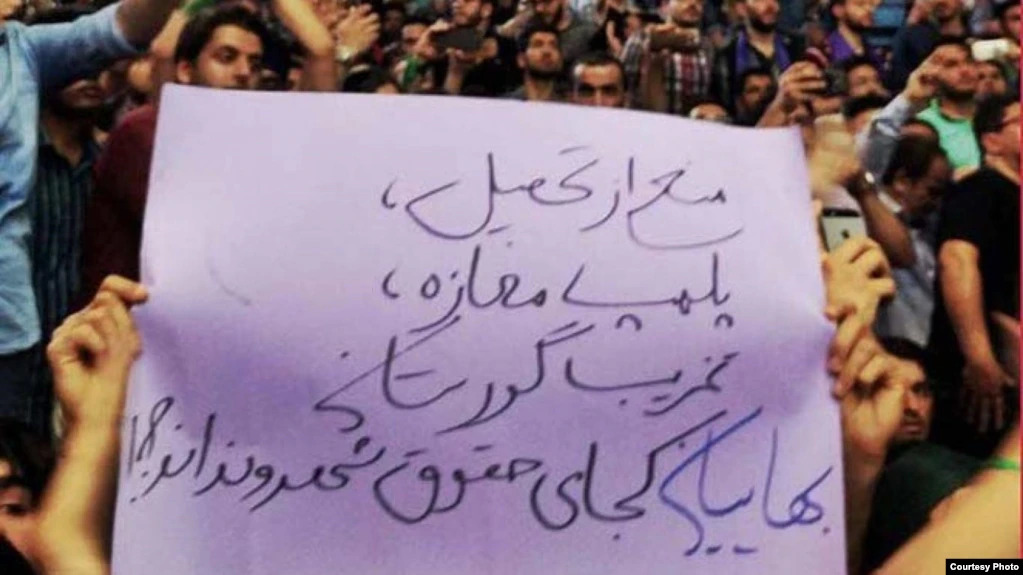 منع از تحصیل،
پلمپ مغازه،
تخریب گورستان
بهاییان کجای حقوق شهروندی اند؟!
Courtesy Photo